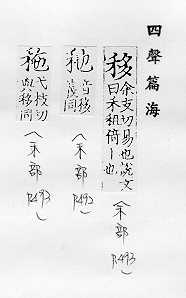 四聲篇海
移
余支切易也說文
曰禾相倚丨也
(禾部
P.493)
音移
義同
(禾部
P.492)
弋枝切
與移同
(禾部
P.493)